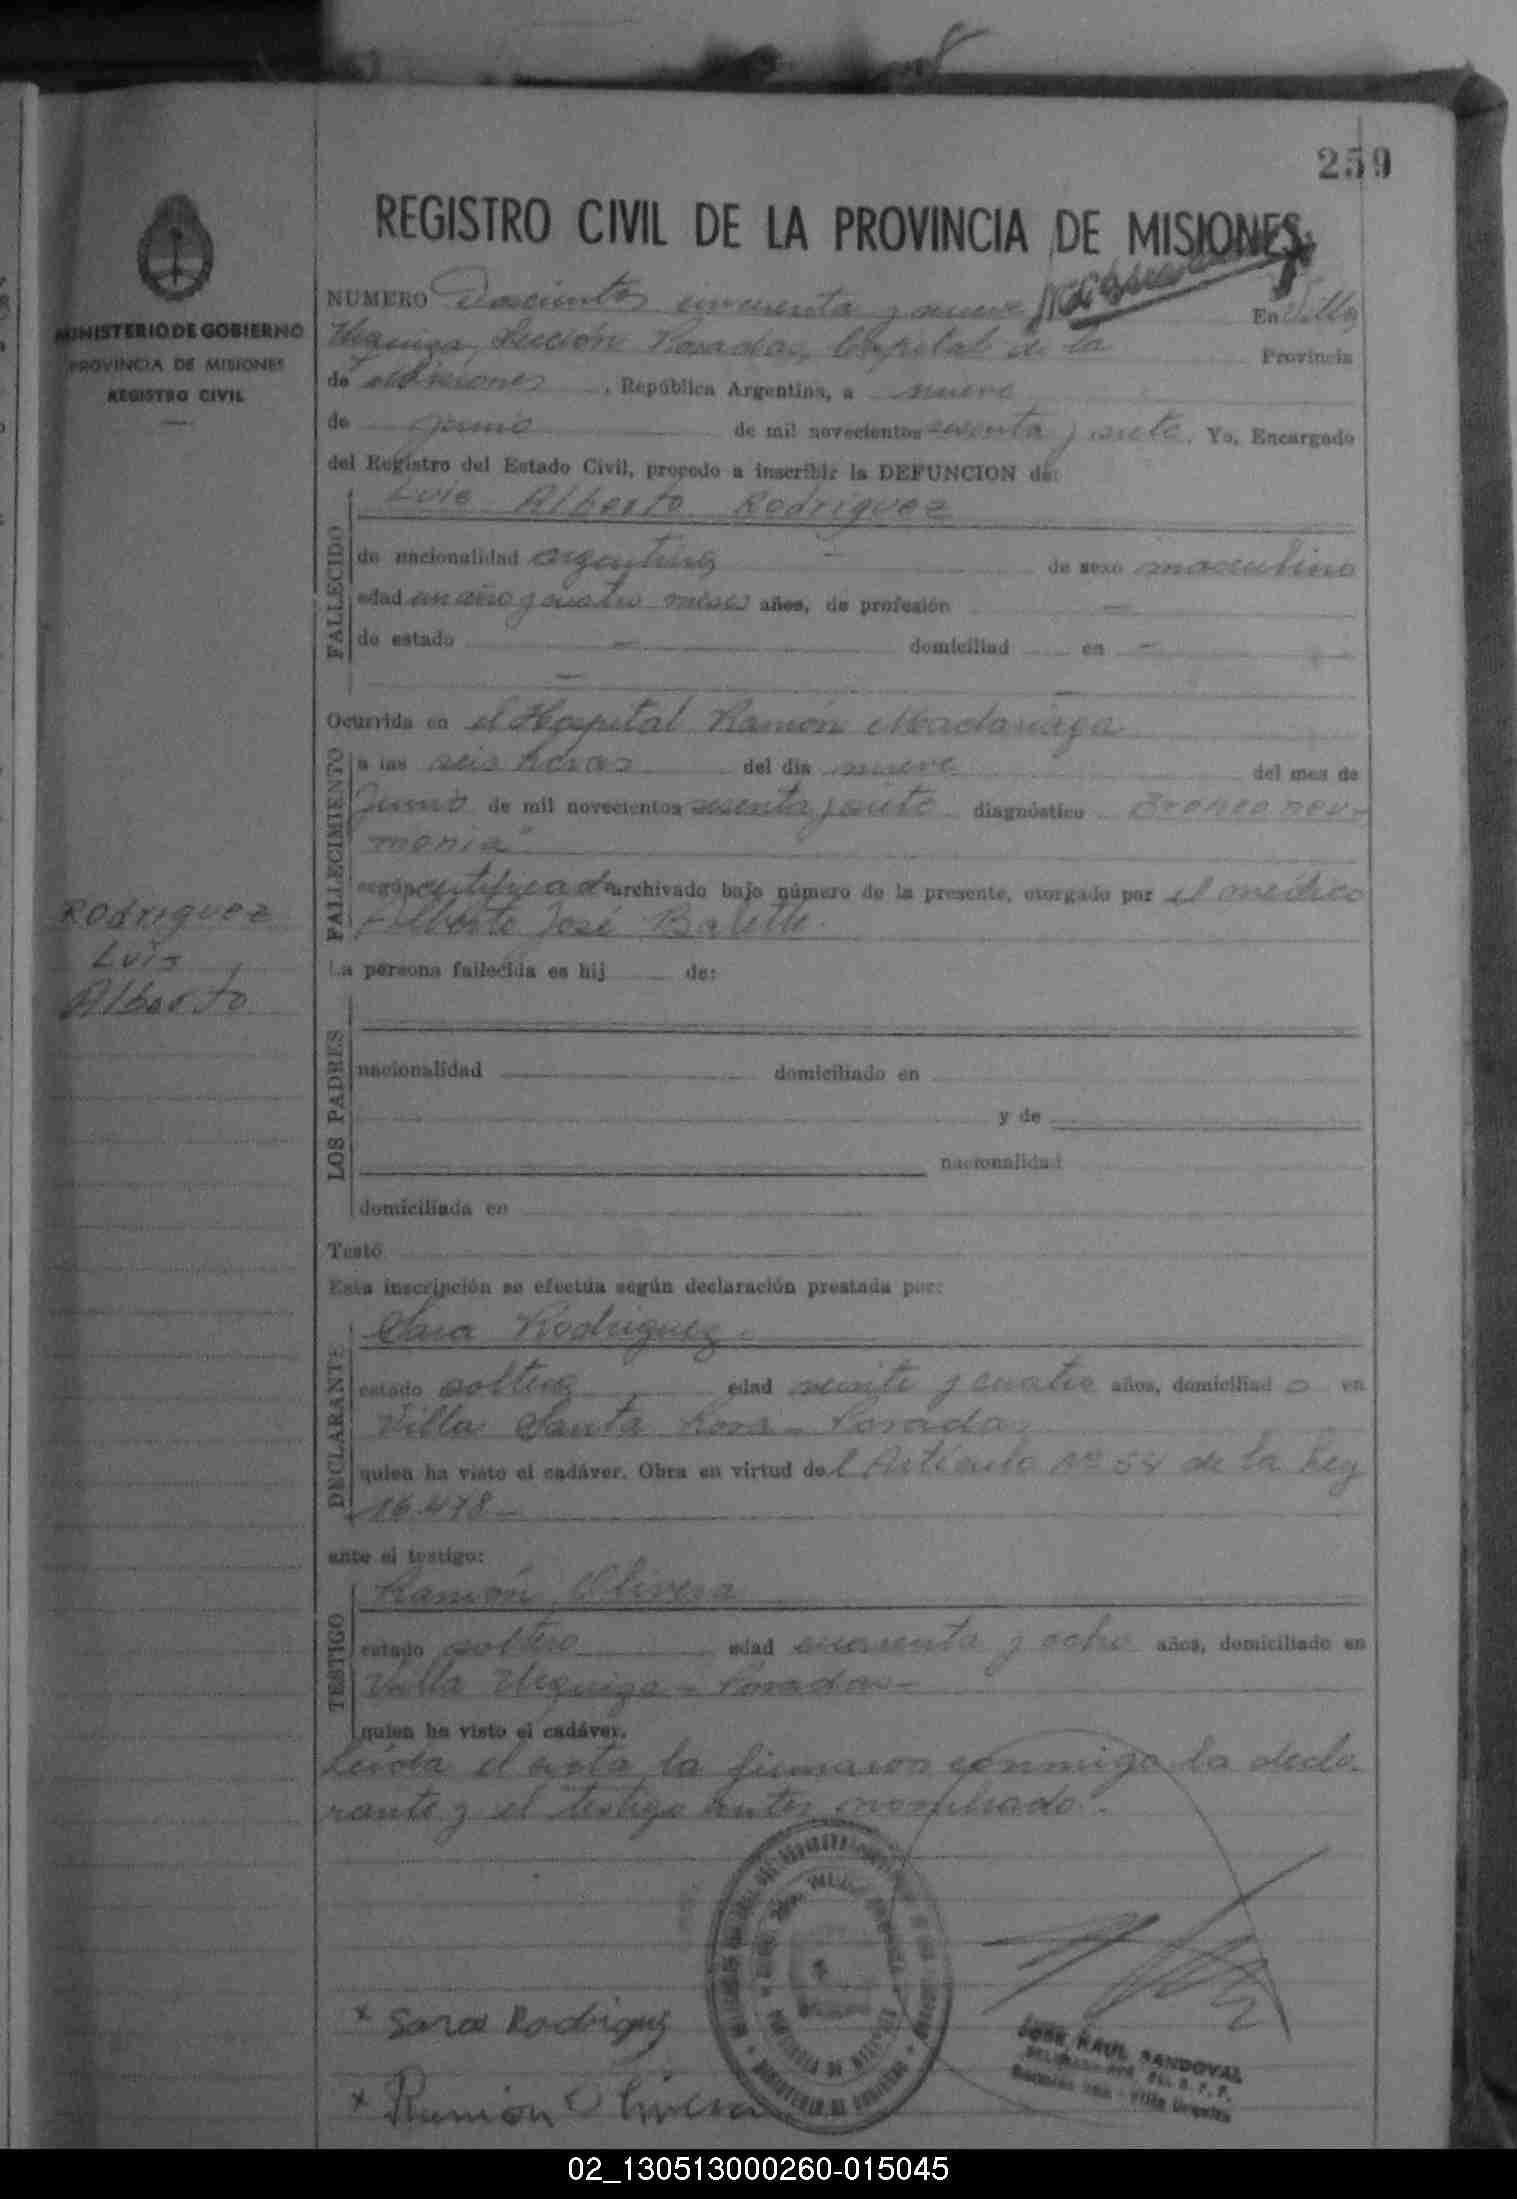 259
REGISTRO CIVIL DE LA PROVINCIA DE MISIONES
MINISTERIO DE GOBIERNO
PROVINCIA DE MISIONES
REGISTRO CIVIL
NUMERO Doscientos cincuenta y nueve En Villa
Urquiza, Sección Posadas, Capital de la Provincia
de Misiones, República Argentina, a nueve
de junio de mil novecientos sesenta y siete. Yo, Encargado
del Registro del Estado Civil, procedo a inscribir la DEFUNCION de:
Luis Alberto Rodriguez
FALLECIDO
de nacionalidad argentina - de sexo masculino
edad un año y cuatro meses años, de profesión -
de estado - domiciliad en -
Ocurrida en el Hospital Ramón Madariaga
FALLECIMIENTO
a las seis horas del día nueve del mes de
Junio de mil novecientos sesenta y siete diagnóstico Bronconeu-
monia"
según certificado archivado bajo número de la presente, otorgado por el médico
Alberto José
Rodriguez
Luis
Alberto
La persona fallecida es hij de:
LOS PADRES
nacionalidad domiciliado en
y de
nacionalidad
domiciliada en
Testó
Esta inscripción se efectúa según declaración prestada por:
DECLARANTE
Sara Rodriguez
estado soltera edad veinte y cuatro años, domiciliad o en
Villa Santa Rosa - Posadas
quien ha visto el cadáver. Obra en virtud del Artículo Nº 54 de la Ley
16.478-
ante el testigo:
TESTIGO
Ramón Olivera
estado soltero edad cuarenta y ocho años, domiciliado en
Villa Urquiza - Posadas-
quien ha visto el cadáver.
Leída el acta la firmaron conmigo la decla-
rante y el testigo antes nombrado.
x Sara Rodriguez
x Ramón Olivera
JOSE RAUL SANDOVAL
02_130513000260-015045